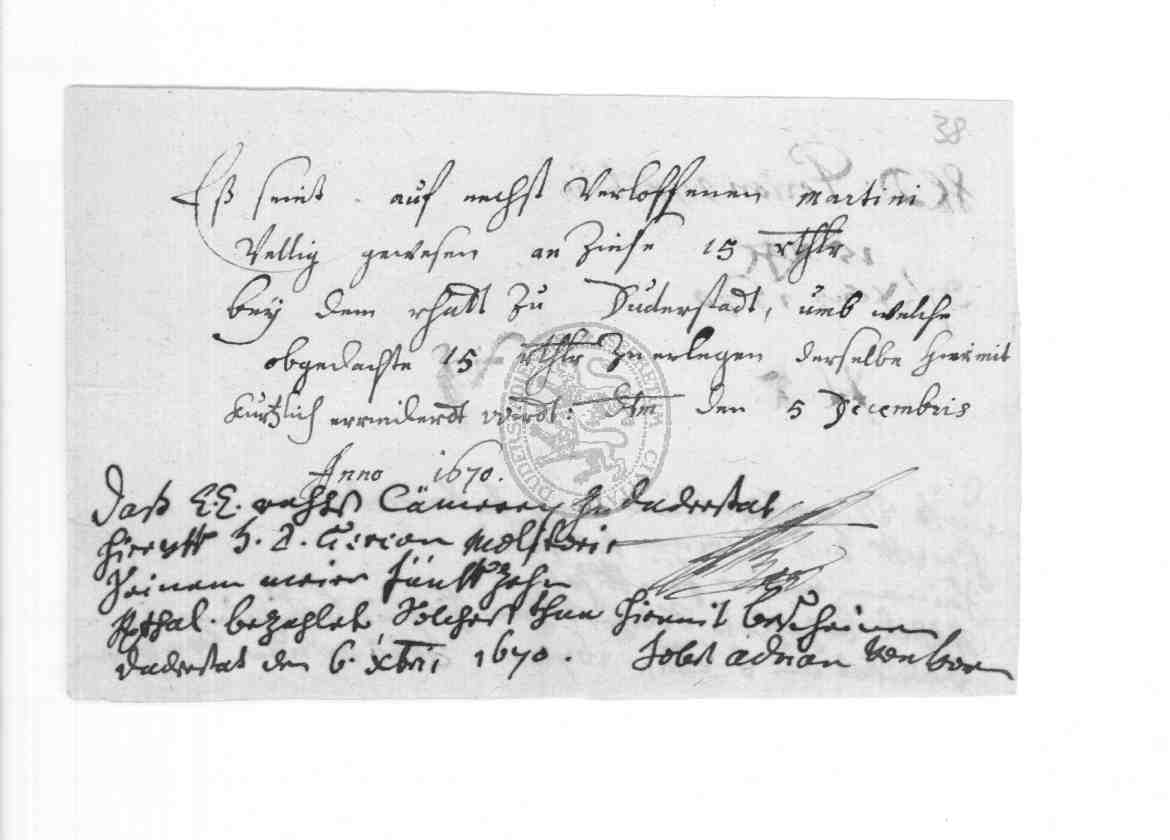 85
Eß seint auf nechst Verloffenen Martini
Vellig gewesen an Zinse 15 rthlr
bey dem rhatt Zu Duderstadt, umb welche
obgedachte 15 rthlr Zu erlegen derselbe hiermit
Kürtzlich errinderdt wirdt: den 5 Decembris
Anno 1670.
Daß E.E. rahtß Cämerey Zu Duderstat
hierauff H.
Heinem meier fünffzehn
Rthal. bezahlet Solches thue hiermit bescheinen
Duderstat den 6. xbris 1670. Jobst adrian von